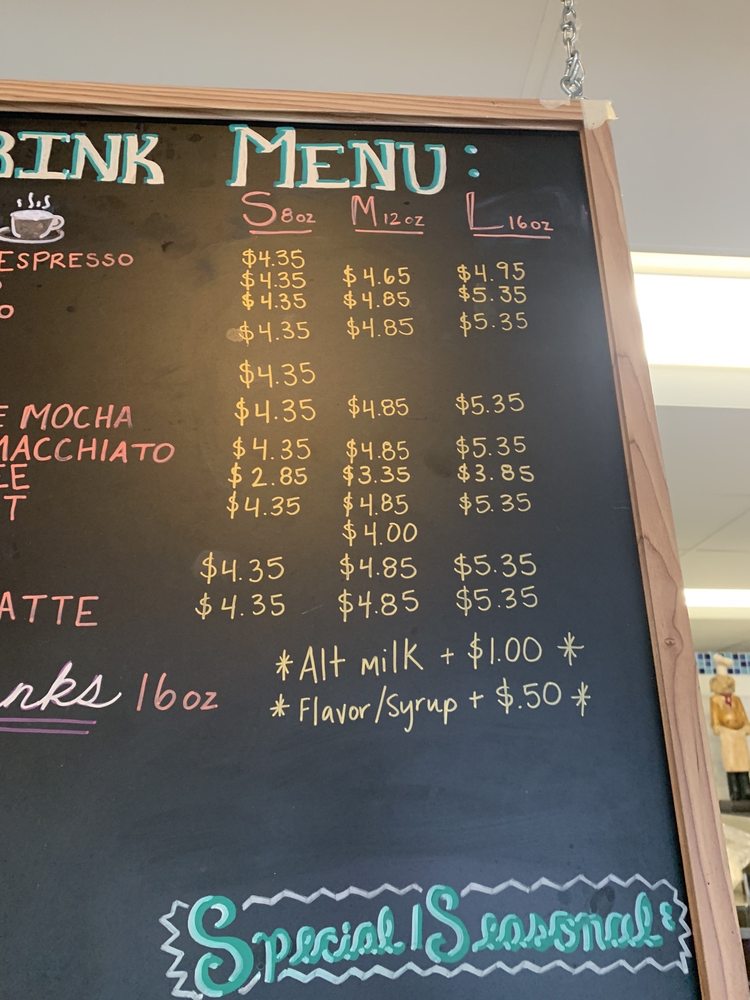 RINK MENU:
S 8oz M 12oz L 16oz
ESPRESSO $4.35
$4.35 $4.65 $4.95
O $4.35 $4.85 $5.35
$4.35 $4.85 $5.35
$4.35
E MOCHA $4.35 $4.85 $5.35
MACCHIATO $4.35 $4.85 $5.35
EE $2.85 $3.35 $3.85
T $4.35 $4.85 $5.35
$4.00
$4.35 $4.85 $5.35
ATTE $4.35 $4.85 $5.35
*Alt milk + $1.00 *
nks 16oz
* Flavor/Syrup + $.50 *
Special/Seasonal: